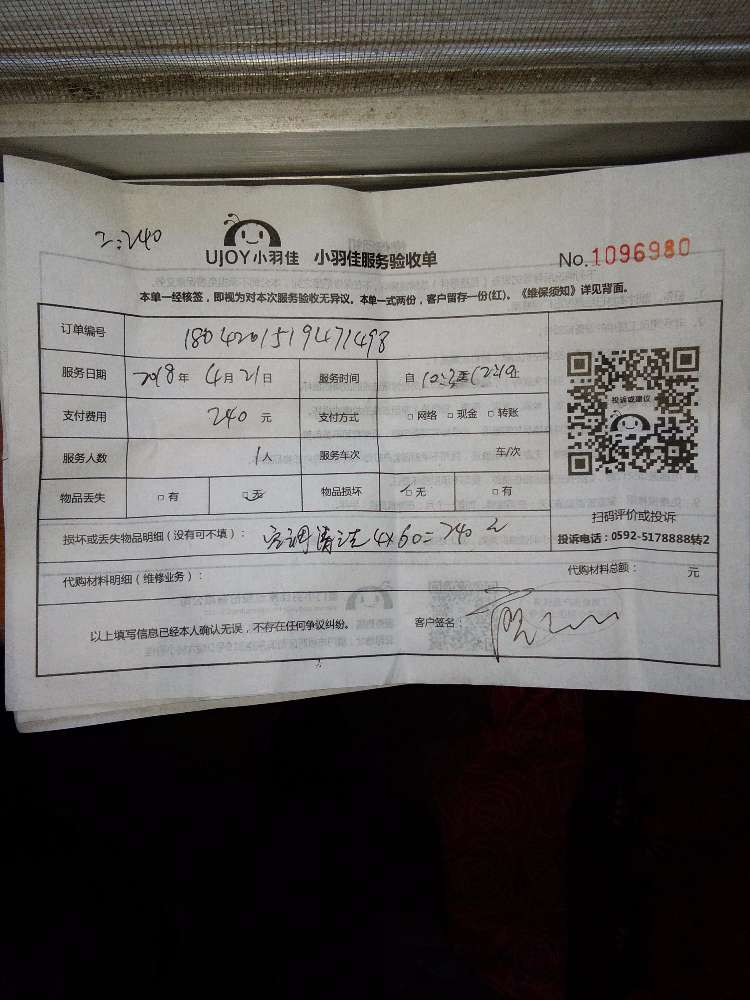 2:240
UJOY小羽佳 小羽佳服务验收单 No.1096980
本单一经核签，即视为对本次服务验收无异议。本单一式两份，客户留存一份(红)。《维保须知》详见背面。
订单编号 1804201519471498
服务日期 2018年 4月21日 服务时间 自 止
支付费用 240 元 支付方式 □网络 □现金 □转账
服务人数 1人 服务车次 车/次
物品丢失 □有 □无 物品损坏 □无 □有
投诉或建议
扫码评价或投诉
投诉电话：0592-5178888转2
损坏或丢失物品明细（没有可不填）： 空调清洗4×60=240元
代购材料明细（维修业务）： 代购材料总额： 元
以上填写信息已经本人确认无误，不存在任何争议纠纷。 客户签名：